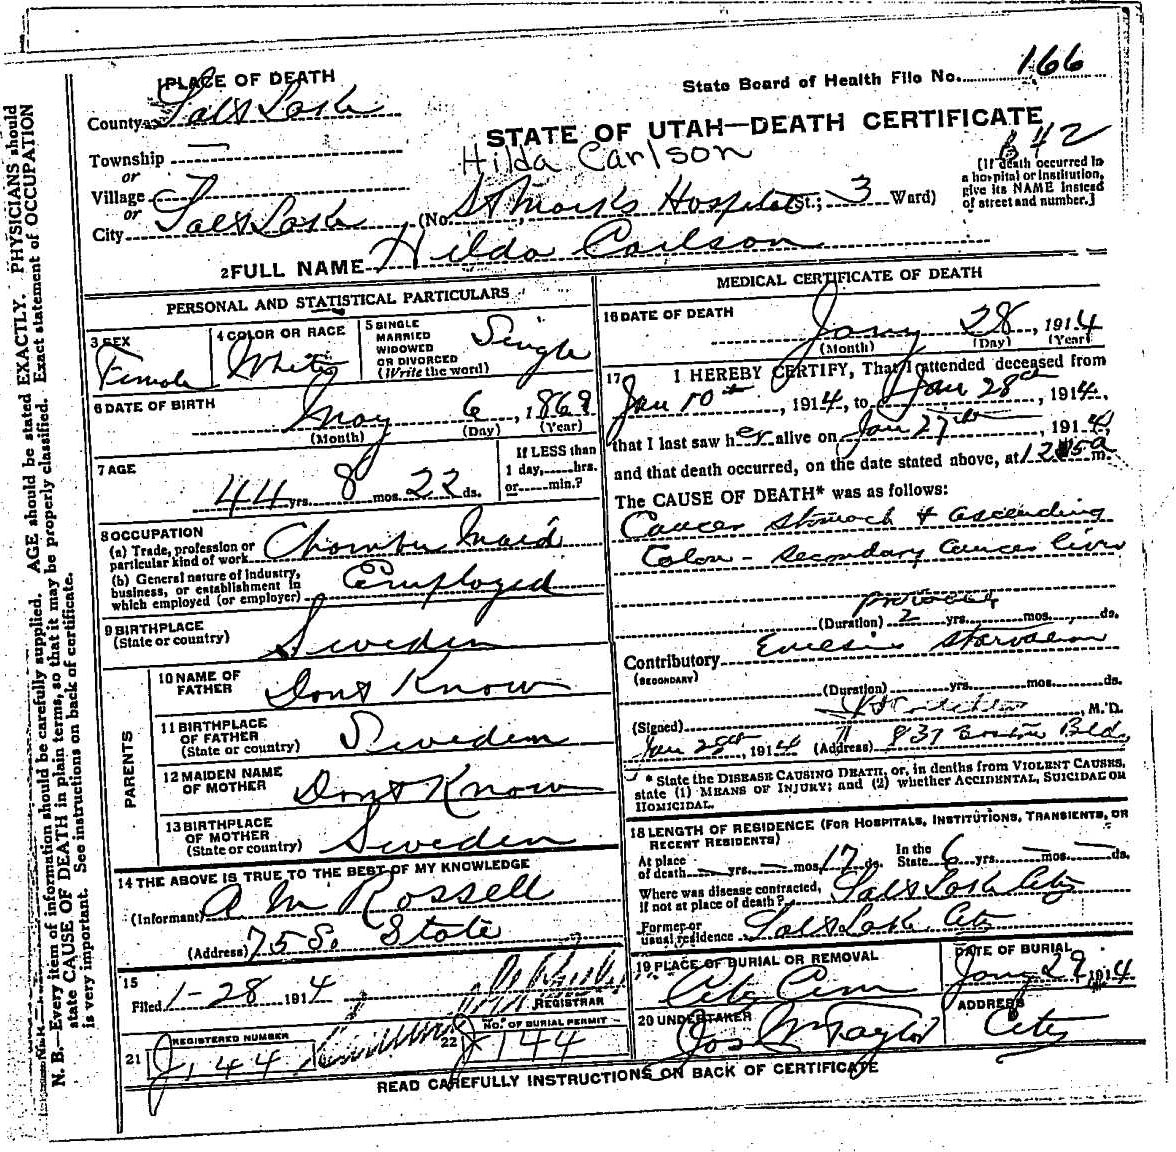 1 PLACE OF DEATH
State Board of Health File No. 166
County Salt Lake
STATE OF UTAH—DEATH CERTIFICATE
Township —
Hilda Carlson
B 42
or
Village
or
City Salt Lake (No. St Mark's Hospital St.; 3 Ward)
[If death occurred in
a hospital or institution,
give its NAME instead
of street and number.]
2 FULL NAME Hilda Carlson
PERSONAL AND STATISTICAL PARTICULARS
3 SEX
Female
4 COLOR OR RACE
White
5 SINGLE
MARRIED
WIDOWED
OR DIVORCED
(Write the word)
Single
6 DATE OF BIRTH
May 6, 1869
(Month) (Day) (Year)
7 AGE
44 yrs. 8 mos. 22 ds.
If LESS than
1 day, hrs.
or min.?
8 OCCUPATION
(a) Trade, profession or
particular kind of work Chamber Maid
(b) General nature of industry,
business, or establishment in
which employed (or employer) Employed
9 BIRTHPLACE
(State or country) Sweden
PARENTS
10 NAME OF
FATHER Dont Know
11 BIRTHPLACE
OF FATHER
(State or country) Sweden
12 MAIDEN NAME
OF MOTHER Dont Know
13 BIRTHPLACE
OF MOTHER
(State or country) Sweden
14 THE ABOVE IS TRUE TO THE BEST OF MY KNOWLEDGE
(Informant) A M Rossell
(Address) 75 So. State
15
Filed 1-28 1914
REGISTRAR
21 REGISTERED NUMBER
J, 144
22 NO. OF BURIAL PERMIT
J 144
MEDICAL CERTIFICATE OF DEATH
16 DATE OF DEATH
Jany 28, 1914
(Month) (Day) (Year)
17 I HEREBY CERTIFY, That I attended deceased from
Jan 10th, 1914, to Jan 28th, 1914,
that I last saw her alive on Jan 27th, 1914,
and that death occurred, on the date stated above, at 12 15 a m.
The CAUSE OF DEATH* was as follows:
Cancer stomach & ascending
Colon - secondary cancer liver
(Duration) 2 yrs. mos. ds.
Contributory starvation
(SECONDARY)
(Duration) yrs. mos. ds.
(Signed) M.D.
Jan 28th, 1914 (Address) 837 Boston Bldg
* State the DISEASE CAUSING DEATH, or, in deaths from VIOLENT CAUSES,
state (1) MEANS OF INJURY; and (2) whether ACCIDENTAL, SUICIDAL OR
HOMICIDAL.
18 LENGTH OF RESIDENCE (FOR HOSPITALS, INSTITUTIONS, TRANSIENTS, OR
RECENT RESIDENTS)
At place
of death — yrs. — mos. 17 ds. In the
State 6 yrs. — mos. — ds.
Where was disease contracted,
if not at place of death? Salt Lake City
Former or
usual residence Salt Lake City
19 PLACE OF BURIAL OR REMOVAL
City Cem
DATE OF BURIAL
Jany 29 1914
20 UNDERTAKER
Jos Wm Taylor
ADDRESS
City
READ CAREFULLY INSTRUCTIONS ON BACK OF CERTIFICATE
N. B.—Every item of information should be carefully supplied. AGE should be stated EXACTLY. PHYSICIANS should
state CAUSE OF DEATH in plain terms, so that it may be properly classified. Exact statement of OCCUPATION
is very important. See instructions on back of certificate.